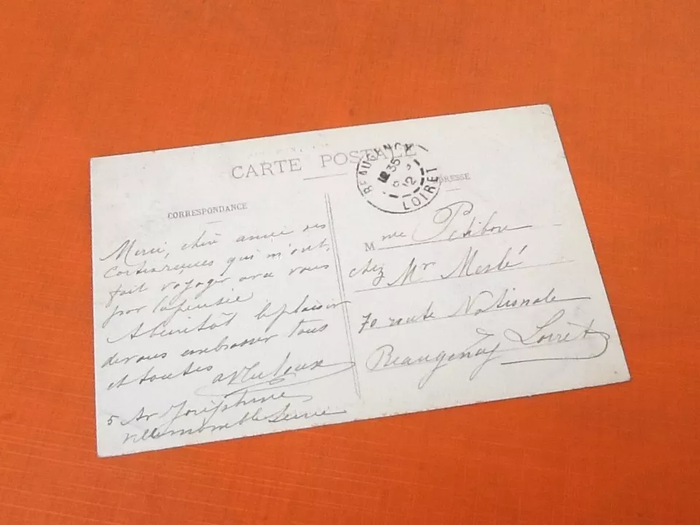 CARTE POSTALE
BEAUGENCY
12 35
12
LOIRET
CORRESPONDANCE
ADRESSE
Merci, chère amie des
qui m'ont
fait voyager avec vous
par la pensée
A bientôt le plaisir
de vous embrasser tous
et toutes
5 Av Joséphine
Villemomble Seine
Mme Petibou
chez Mr Meslé
70 route Nationale
Beaugency Loiret